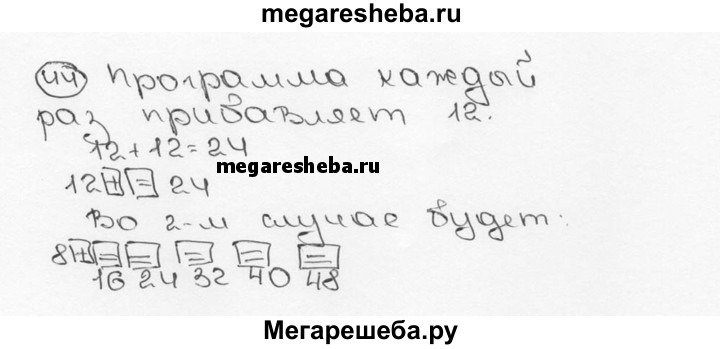 megaresheba.ru
44 Программа каждый
раз прибавляет 12.
12 + 12 = 24
megaresheba.ru
12 + = 24
Во 2-м случае будет:
8 + = = = = =
16 24 32 40 48
Мегарешеба.ру